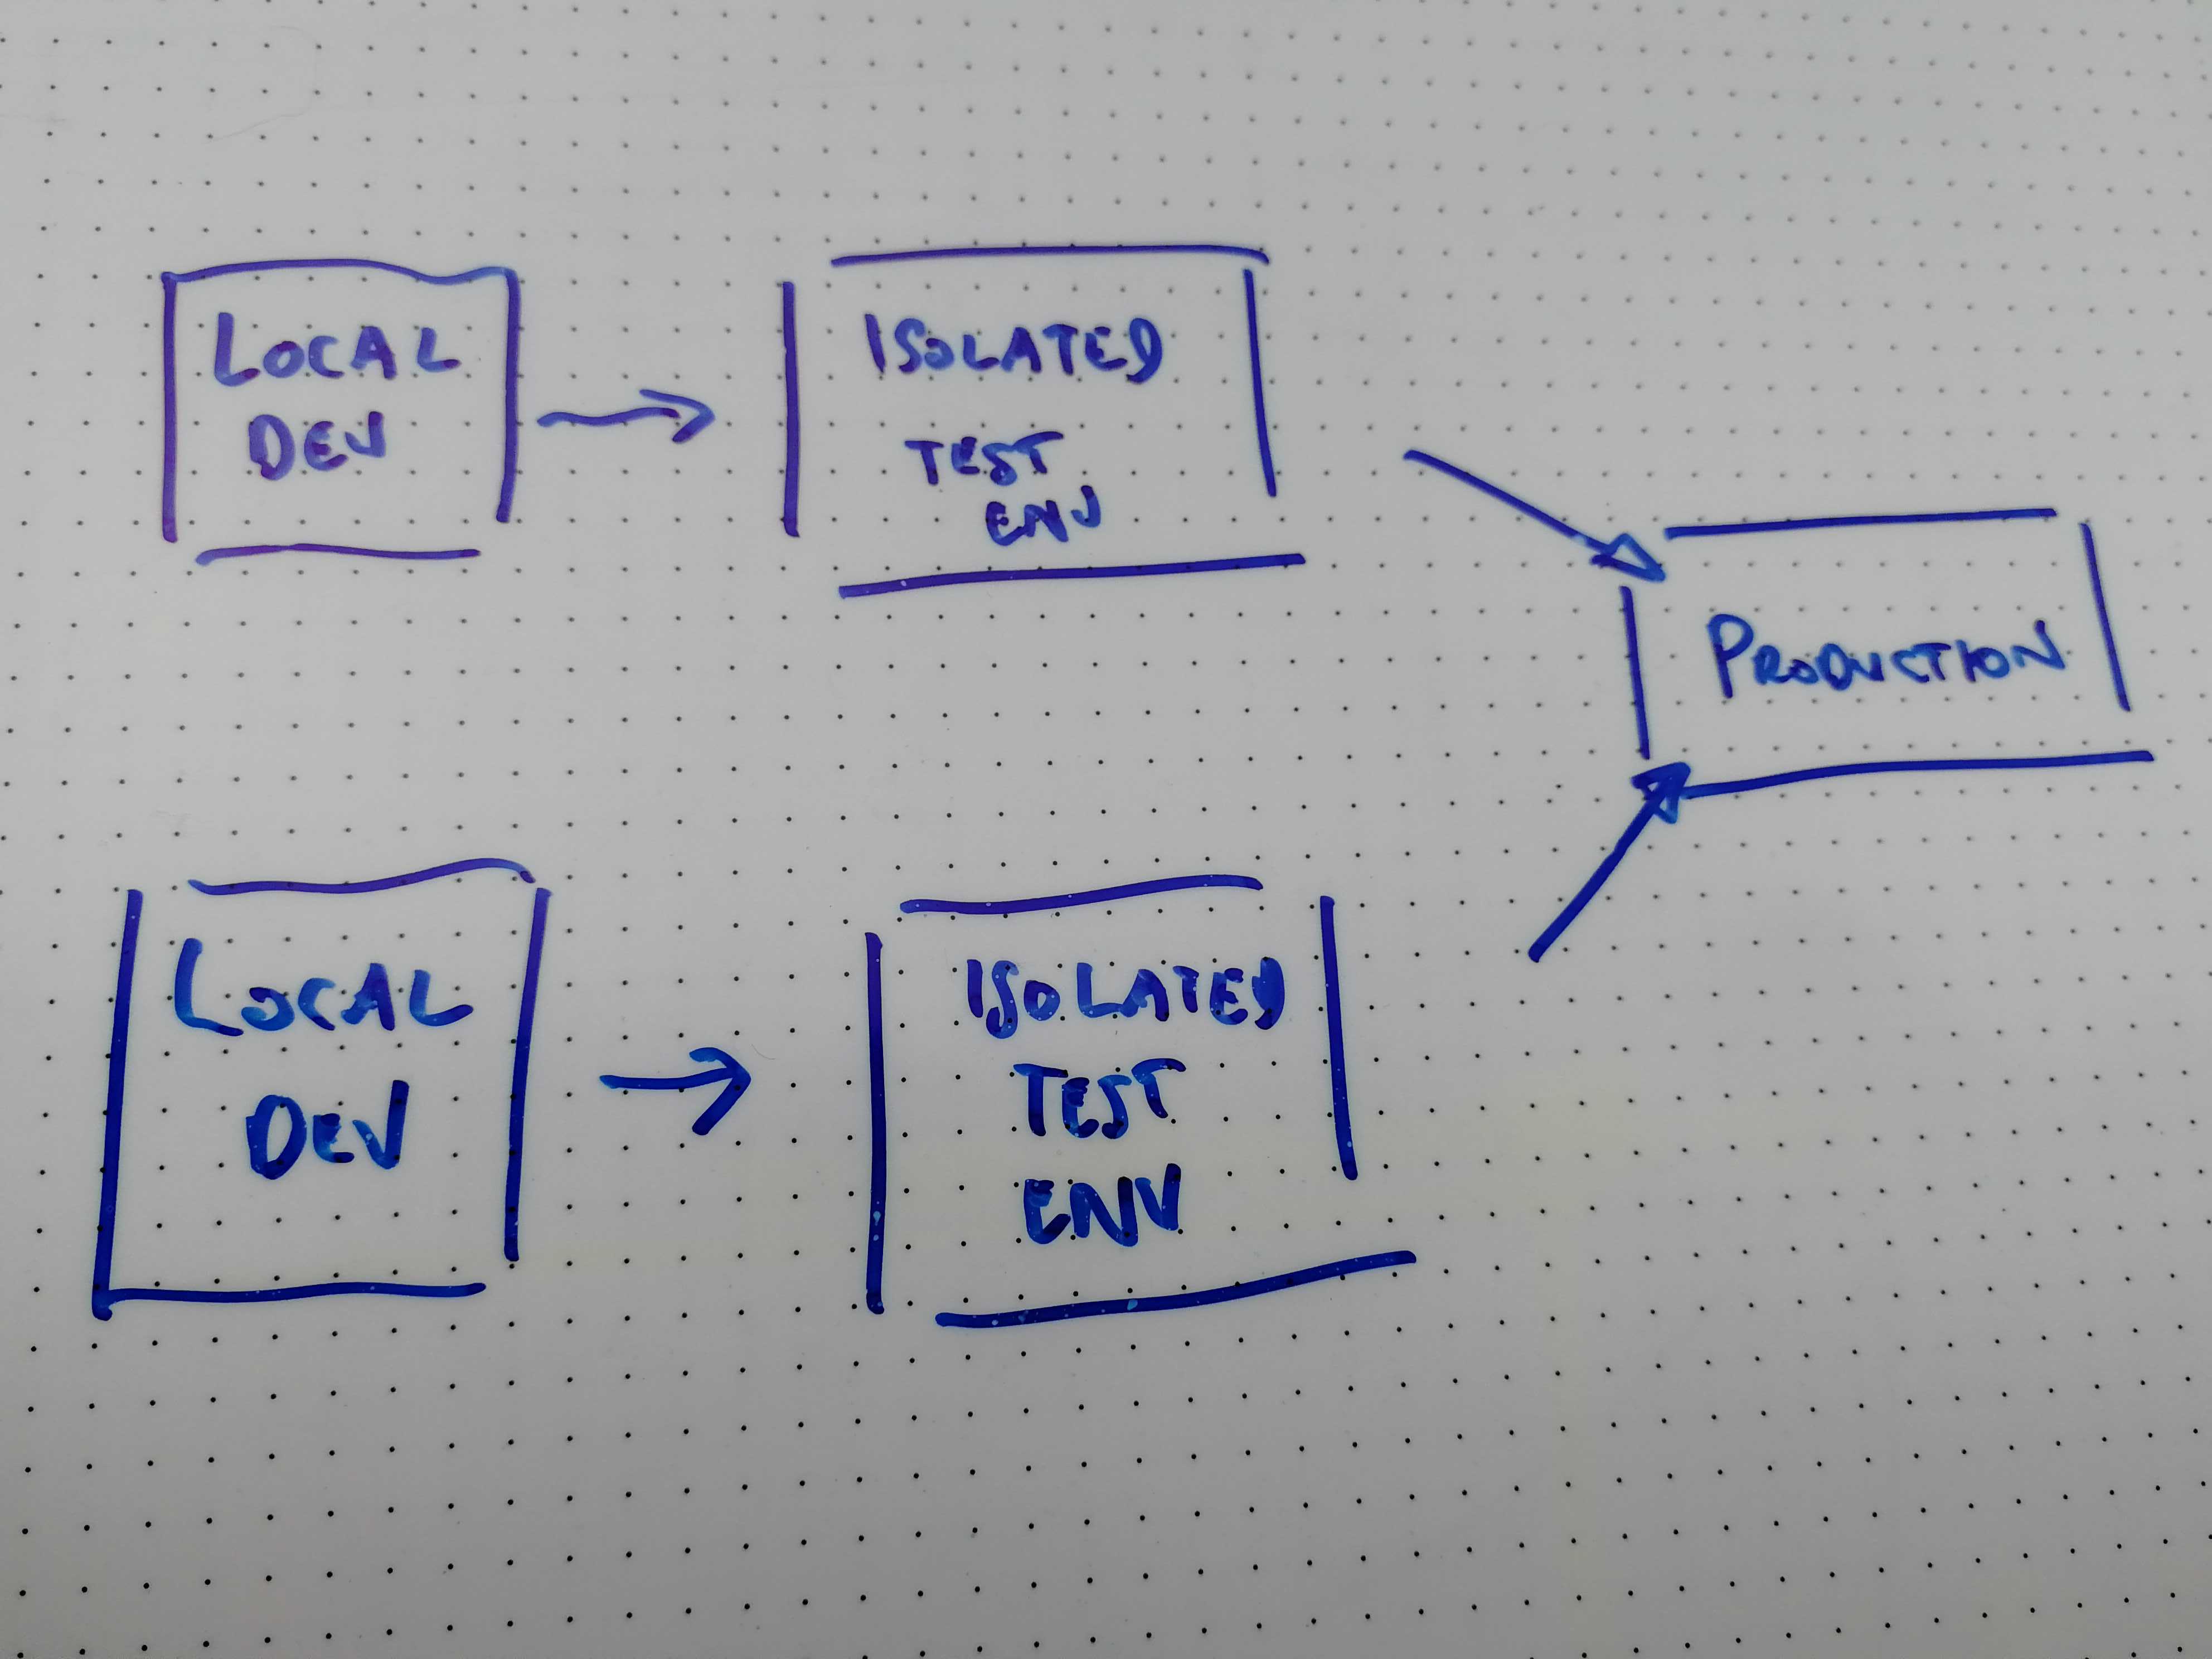 LOCAL
DEV
ISOLATED
TEST
ENV
PRODUCTION
LOCAL
DEV
ISOLATED
TEST
ENV